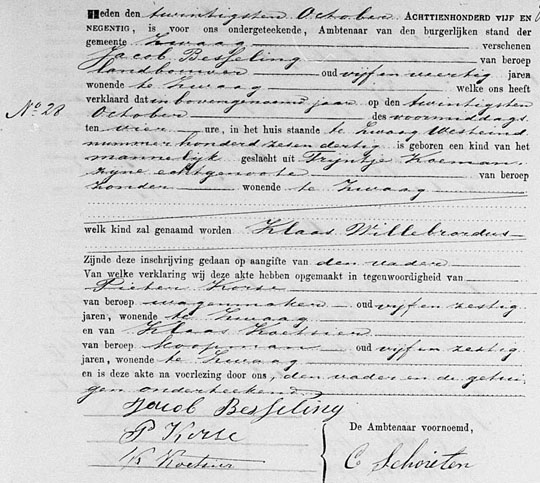 Heden den twintigsten October ACHTTIENHONDERD VIJF EN
NEGENTIG, is voor ons ondergeteekende, Ambtenaar van den burgerlijken stand der
gemeente Zwaag verschenen
Jacob Besseling van beroep
landbouwer oud vijf en veertig jaren
wonende te Zwaag welke ons heeft
verklaard dat in bovengenoemd jaar op den twintigsten
Nº 28
October des voormiddags
ten vier ure, in het huis staande te Zwaag Westeind
nummer honderd zes en dertig is geboren een kind van het
mannelijk geslacht uit Trijntje Koeman,
zijne echtgenoote van beroep
zonder wonende te Zwaag
welk kind zal genaamd worden Klaas Willebrordus
Zijnde deze inschrijving gedaan op aangifte van den vader
Van welke verklaring wij deze akte hebben opgemaakt in tegenwoordigheid van
Pieter Korse
van beroep wagenmaker oud vijf en zestig
jaren, wonende te Zwaag
en van Klaas Koetsier
van beroep koopman oud vijf en zestig
jaren, wonende te Zwaag
en is deze akte na voorlezing door ons, den vader en de getui-
gen onderteekend.
Jacob Besseling
P Korse
De Ambtenaar voornoemd,
K Koetsier
C Schouten